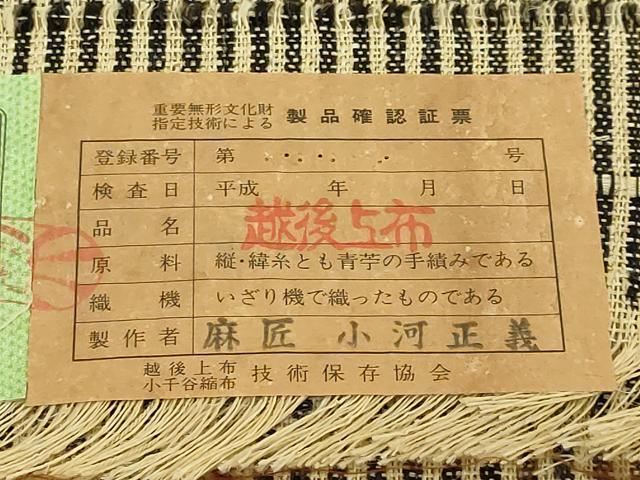 重要無形文化財
指定技術による 製品確認証票
登録番号 第 号
検査日 平成 年 月 日
品名 越後上布
原料 縦・緯糸とも青苧の手績みである
織機 いざり機で織ったものである
製作者 麻匠 小河正義
越後上布
小千谷縮布 技術保存協会